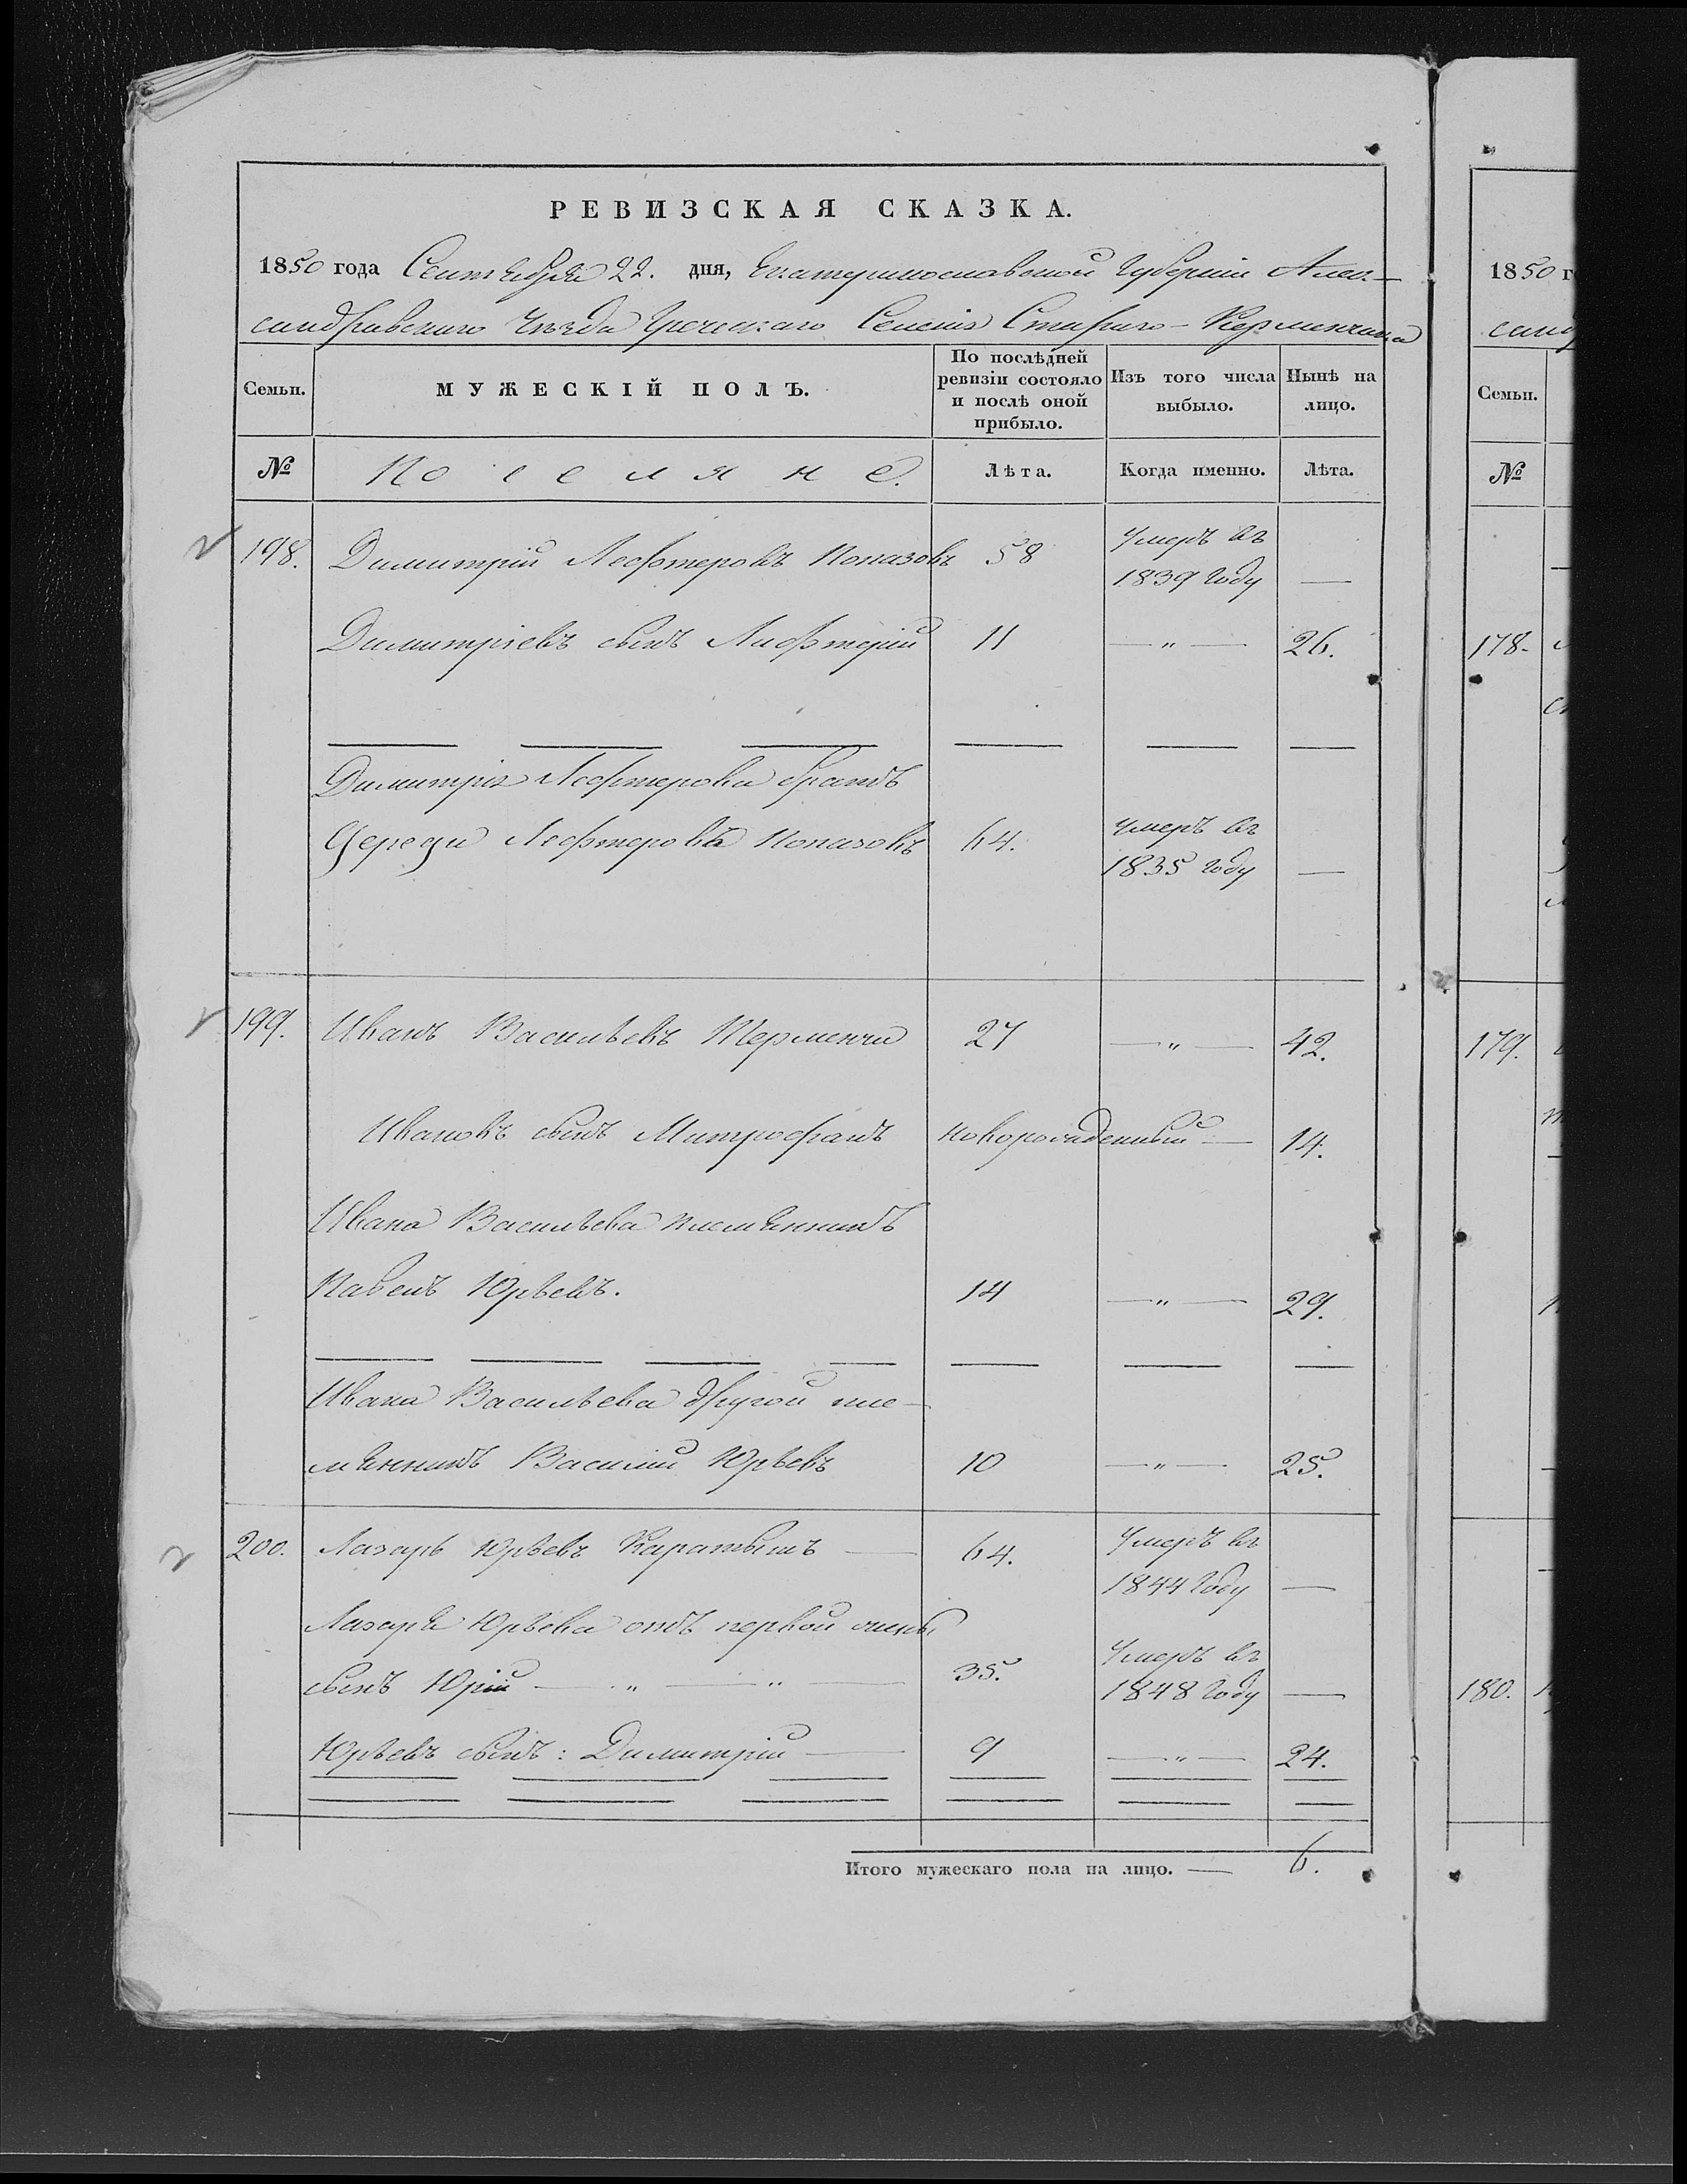 РЕВИЗСКАЯ СКАЗКА.
1850 года Сентября 22. дня, Екатеринославской Губерніи Алек-
сандровскаго Уѣзда Греческаго Селенія Стараго-Керменчика
Семьи. МУЖЕСКІЙ ПОЛЪ. По послѣдней ревизіи состояло и послѣ оной прибыло. Изъ того числа выбыло. Нынѣ на лицо.
№ Поселяне. Лѣта. Когда именно. Лѣта.
198. Димитрій Лефтеровъ Попазовъ 58 Умеръ въ 1839 году —
Димитріевъ сынъ Лифтерій 11 — " — 26.
Димитрія Лефтерова братъ
Лефтеровъ Попазовъ 64. Умеръ въ 1835 году —
199. Иванъ Васильевъ Терменчи 27 — " — 42.
Ивановъ сынъ Митрофанъ новорожденный — 14.
Ивана Васильева племянникъ
Павелъ Юрьевъ. 14 — " — 29.
Ивана Васильева другой пле-
мянникъ Василій Юрьевъ 10 — " — 25.
200. Лазарь Юрьевъ Каратышъ — 64. Умеръ въ 1844 году —
Лазаря Юрьева отъ первой жены
сынъ Юрій — " — " — 35. Умеръ въ 1848 году —
Юрьевъ сынъ: Димитрій — 9 — " — 24.
Итого мужескаго пола на лицо. — 6.
1850 г
санд
Семьи.
№
178.
179.
180.